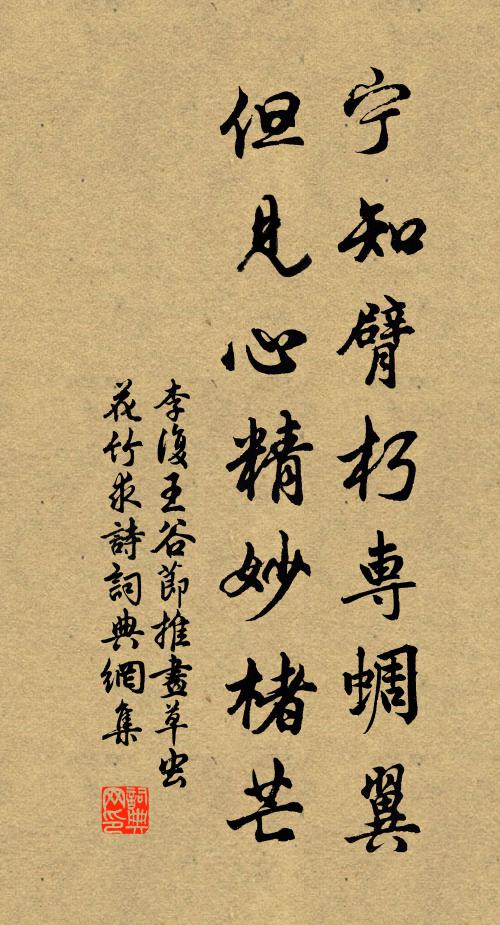 宁知臂朽専蜩翼
但見心精妙楮芒
李復王谷節推畫草虫
花竹求詩詞典網集
詞典
网印